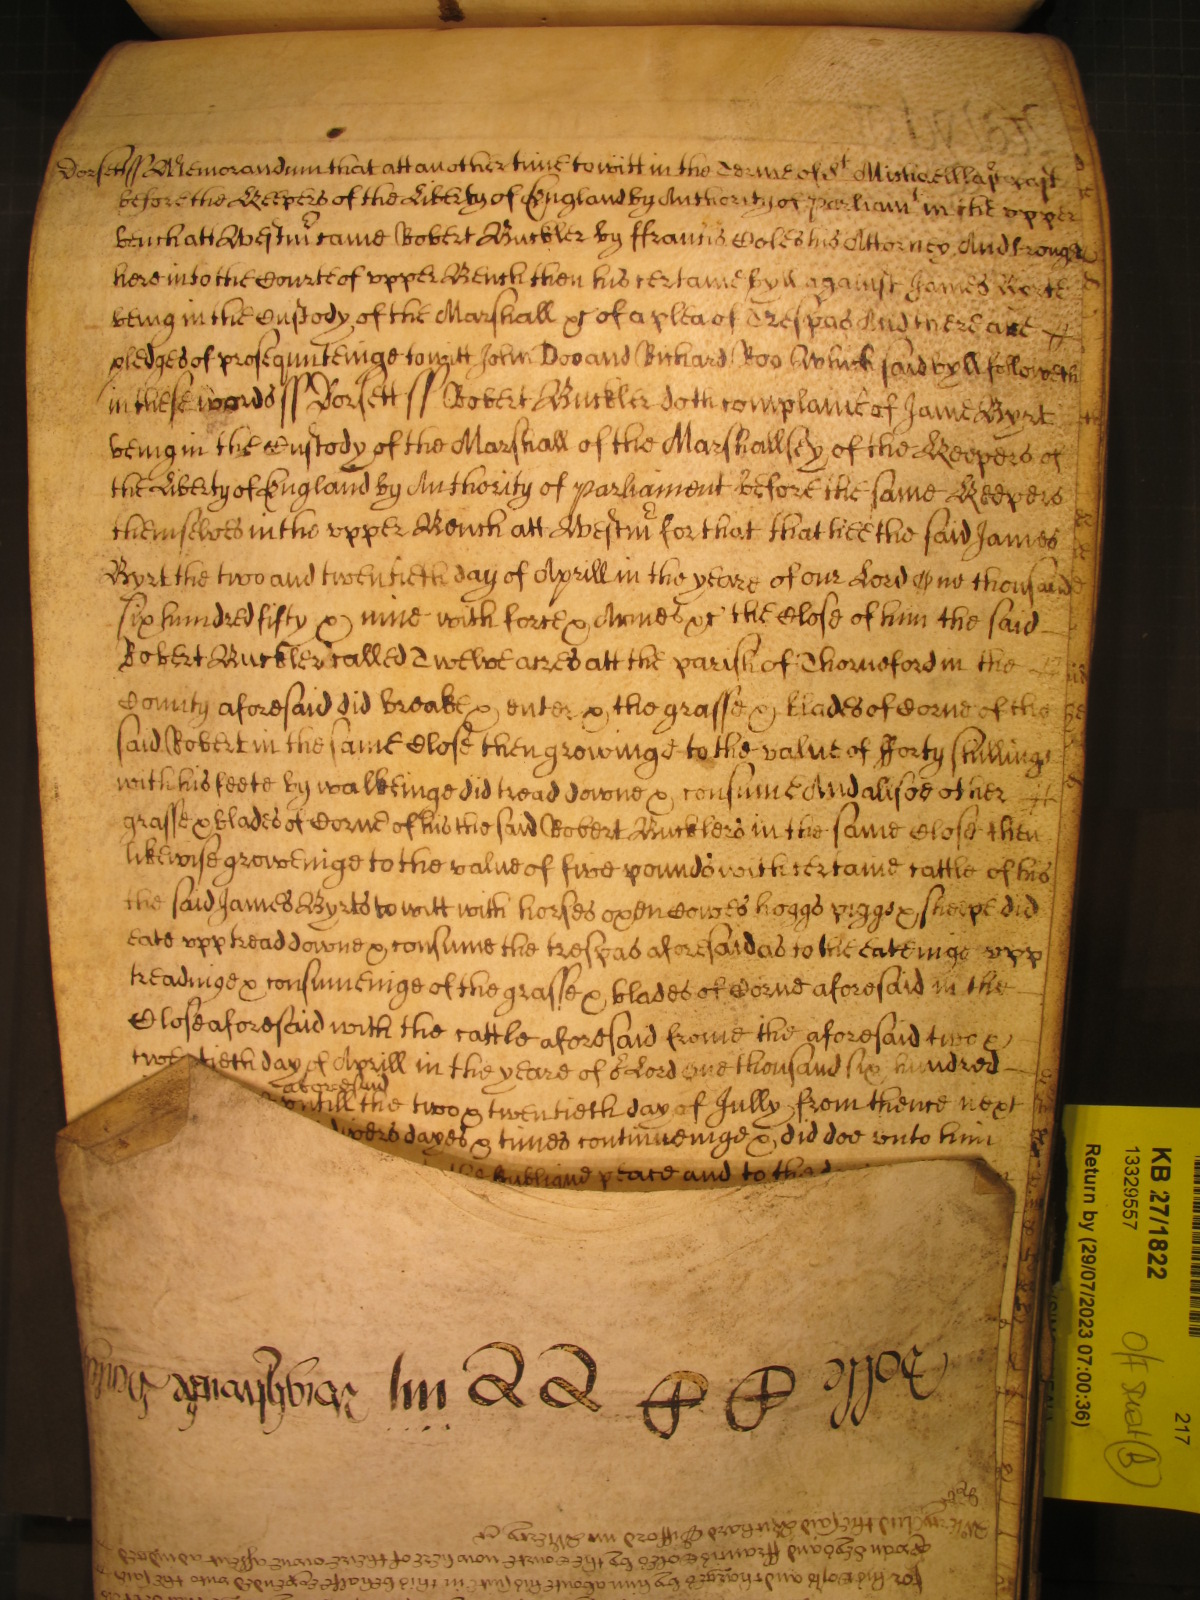 Dorsett ss Memorandum that att another time to witt in the Terme of St Michaell last past
before the Keepers of the Liberty of England by Authority of Parliamt in the upper
bench att Westmr came Robert Buckler by ffrancis Coles his Attorney And brought
here into the Courte of upper Bench then his certaine byll against James Byrte
being in the Custody of the Marshall &c of a plea of Trespas And there are
pledges of prosequuteinge towitt John Doo and Richard Roo Which said byll followeth
in these words ss Dorsett ss Robert Buckler doth complaine of James Byrt
being in the Custody of the Marshall of the Marshallsey of the Keepers of
the Liberty of England by Authority of parliament before the same Keepers
themselves in the upper Bench att Westmr for that that hee the said James
Byrt the two and twentieth day of Aprill in the yeare of our Lord One thousand
six hundred fifty & nine with force & Armes &c the Close of him the said
Robert Buckler called Twelve acres att the parish of Thorneford in the
County aforesaid did breake & enter & the grasse & blades of Corne of the
said Robert in the same Close then growinge to the value of fforty shillings
with his feete by walkeinge did tread downe & consume And alsoe other
grasse & blades of Corne of his the said Robert Bucklers in the same Close then
likewise groweinge to the value of five pounds with certaine cattle of his
the said James Byrts to witt with horses oxen Cowes hoggs piggs & sheepe did
eate upp tread downe & consume the trespas aforesaid as to the eateinge upp
treadinge & consumeinge of the grasse & blades of Corne aforesaid in the
Close aforesaid with the cattle aforesaid frome the aforesaid two &
twentieth day of Aprill in the yeare of or Lord One thousand six hundred
aforesaid
untill the two & twentieth day of Jully from thence next
divers dayes & times continueinge & did doe unto him
the Publique peace and to the
Rolle
for his Costs and charges by him about his suite in this behalfe expended unto the said
by the Courte now here of theire owne assent adiudged
And the said Richard Gifford in Mercy &c
KB 27/1822
13329557
Return by (29/07/2023 07:00:36)
217